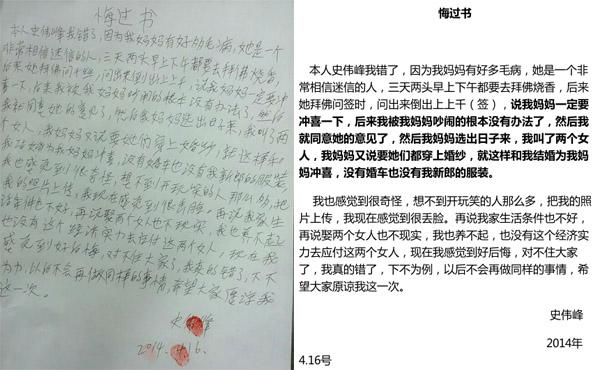 悔过书
本人史伟峰我错了,因为我妈妈有好多毛病,她是一个
非常相信迷信的人,三天两头早上下午都要去拜佛烧香,
后来她拜佛问签时,问出来倒出上上干,说我妈妈一定要冲
喜一下,后来我被我妈妈吵闹的根本没有办法了,然后
我就同意她的意见了,然后我妈妈选出日子来,我叫了两
个女人,我妈妈又说要她们穿上婚纱,就这样和
我结婚为我妈妈冲喜,没有婚车也没有我新郎的服装,
我也感觉到很奇怪,想不到开玩笑的人那么多,把
我的照片上传,我现在感觉到很丢脸。再说我家生
活条件也不好,再说娶两个女人也不现实,我也养不起
也没有这个经济实力去应付这两个女人,现在我
感觉到好后悔,对不住大家了,我真的错了,下不
为力,以后不会再做同样的事情,希望大家原谅我
这一次。
史伟峰
2014.4.16.
悔过书
本人史伟峰我错了,因为我妈妈有好多毛病,她是一个非
常相信迷信的人,三天两头早上下午都要去拜佛烧香,后来
她拜佛问签时,问出来倒出上上干(签),说我妈妈一定要
冲喜一下,后来我被我妈妈吵闹的根本没有办法了,然后我
就同意她的意见了,然后我妈妈选出日子来,我叫了两个女
人,我妈妈又说要她们都穿上婚纱,就这样和我结婚为我妈
妈冲喜,没有婚车也没有我新郎的服装。
我也感觉到很奇怪,想不到开玩笑的人那么多,把我的照
片上传,我现在感觉到很丢脸。再说我家生活条件也不好,
再说娶两个女人也不现实,我也养不起,也没有这个经济实
力去应付这两个女人,现在我感觉到好后悔,对不住大家
了,我真的错了,下不为例,以后不会再做同样的事情,希
望大家原谅我这一次。
史伟峰
2014年
4.16号